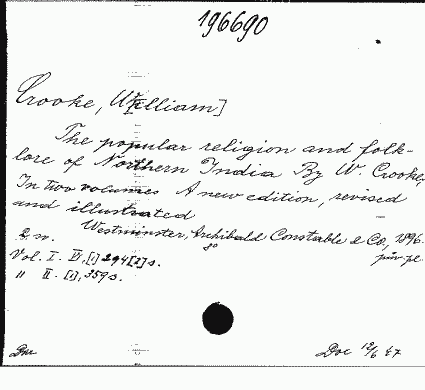 196690
Crooke, W[illiam]
The popular religion and folk-
lore of Northern India By W. Crooke,
In two volumes A new edition, revised
and illustrated
Westminster, Archibald Constable & Co, 1896.
2 v. 8°
Vol. I. IV, [1] 294 [2] s.
" II. [1], 359 s.
Doc 12/6 47